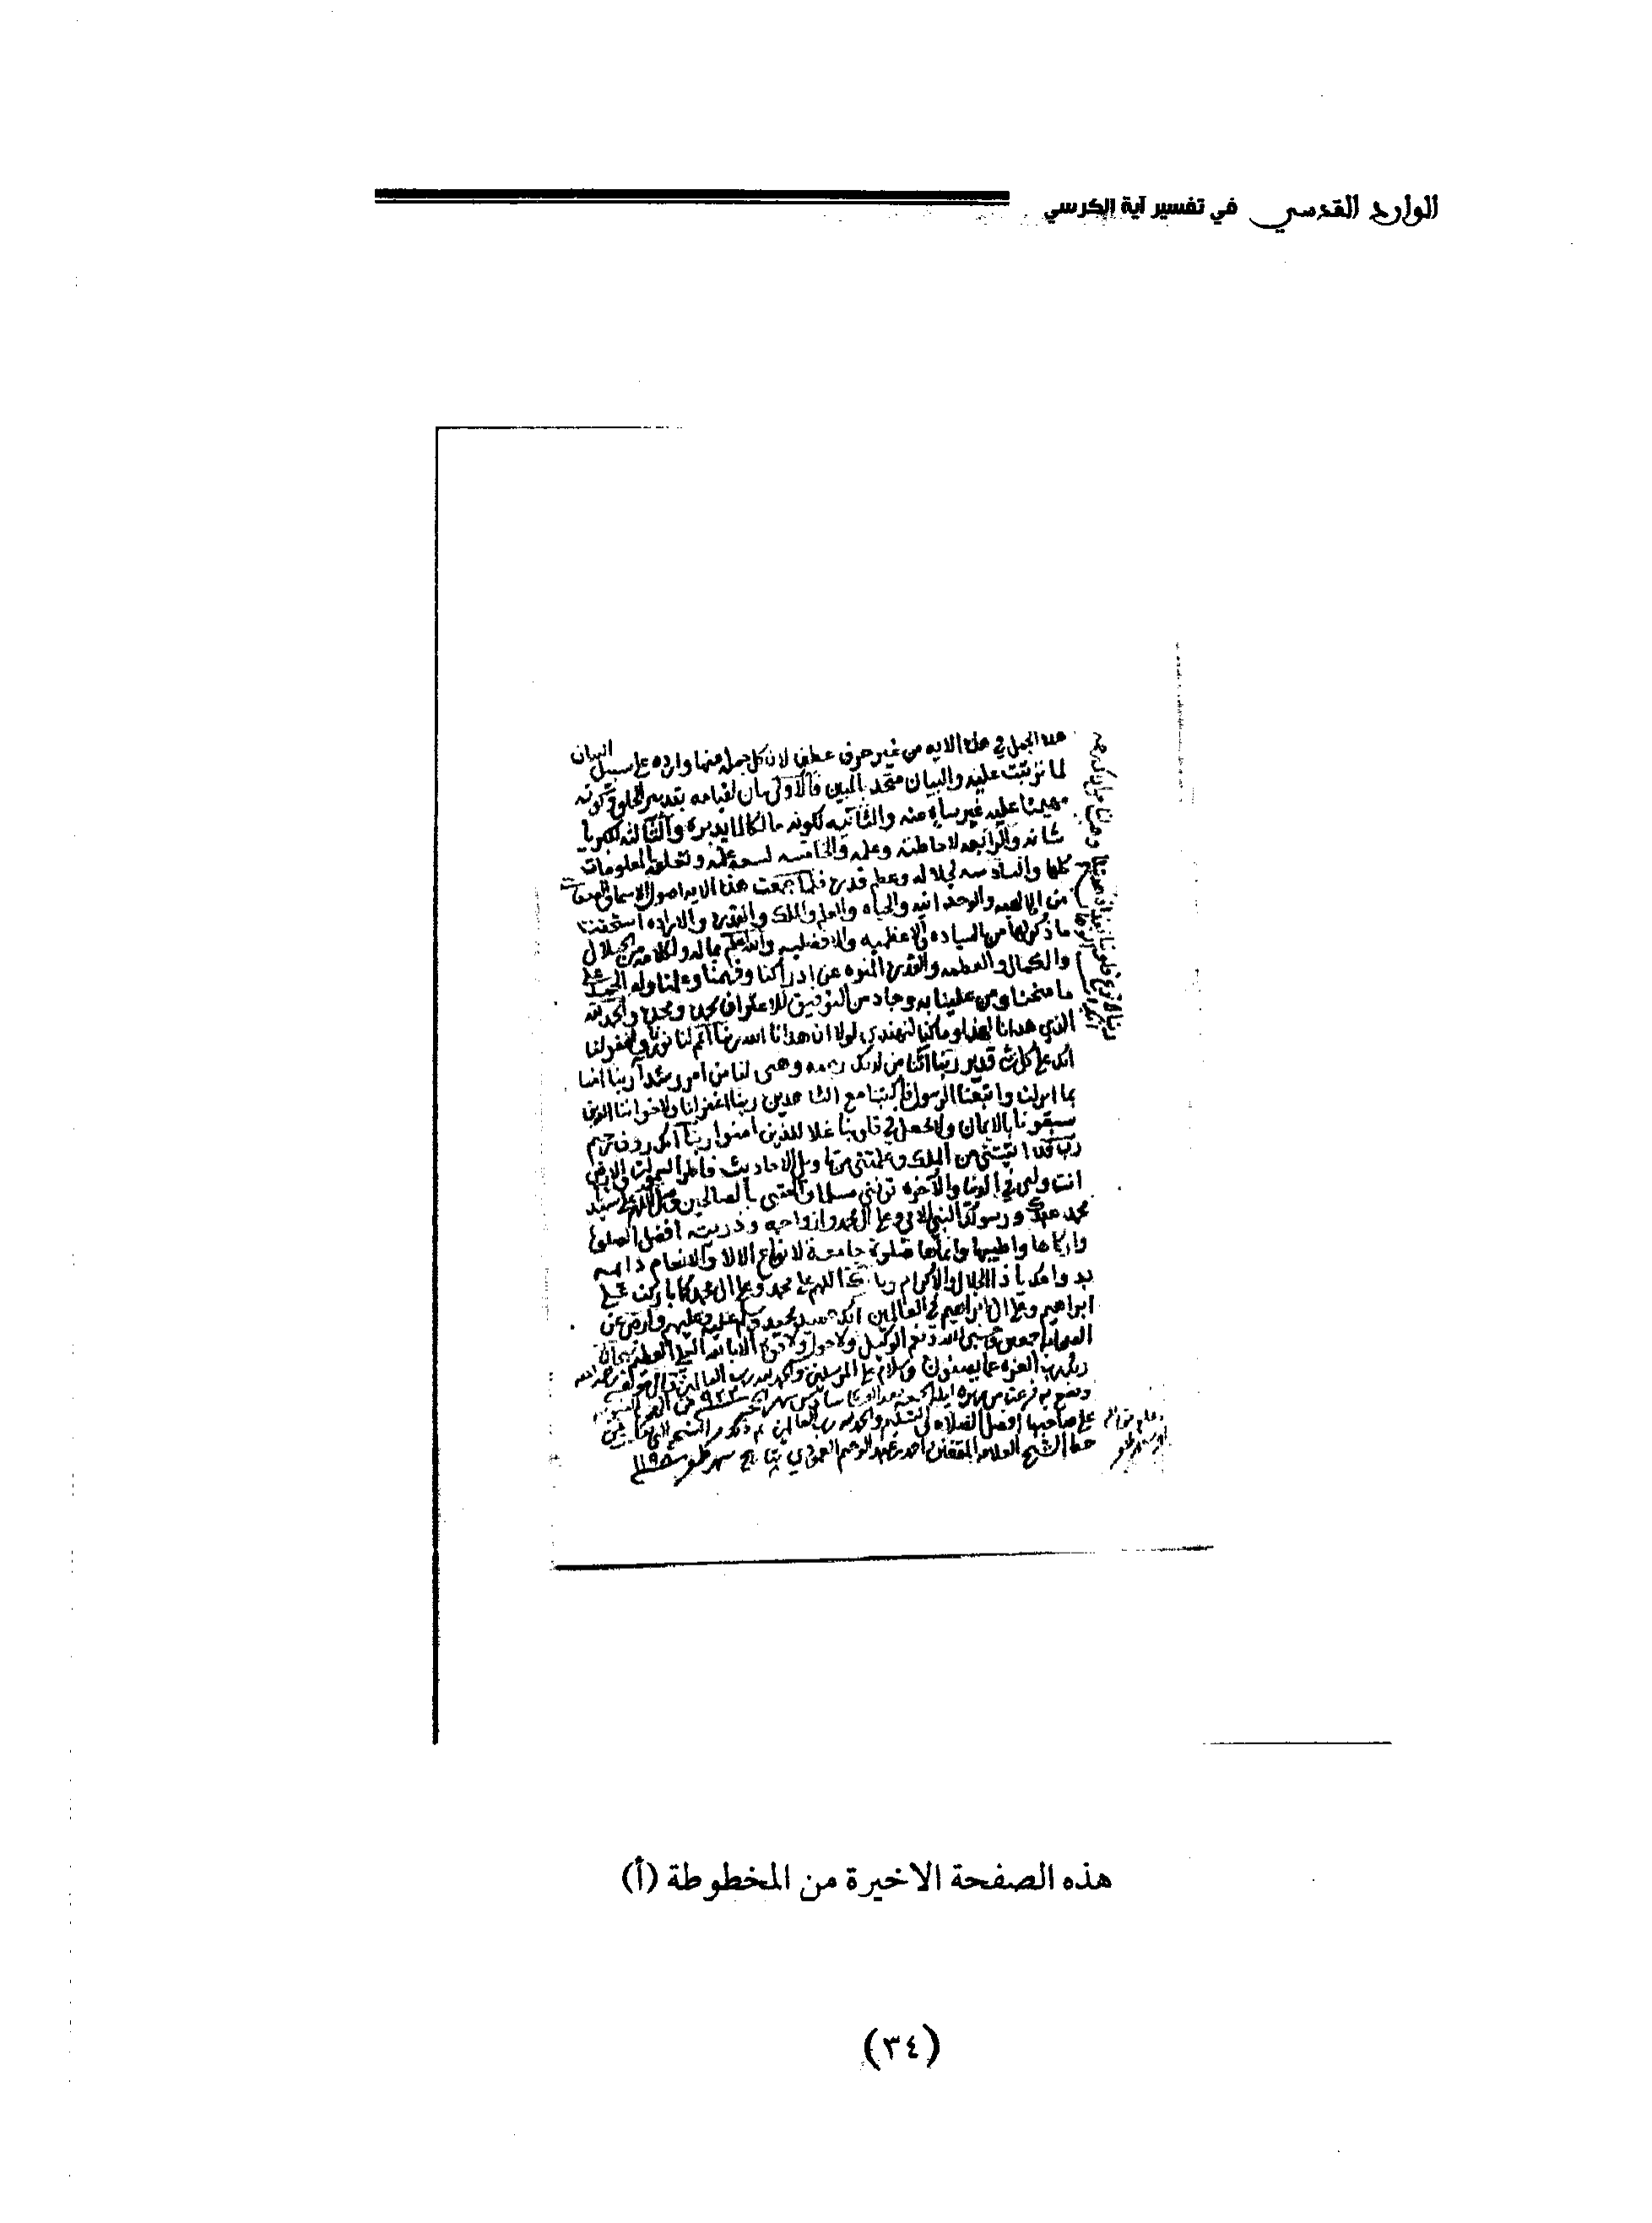 الوارد القدسي في تفسير آية الكرسي
هذه الجمل في هذه الايه من غير حرف عطف لان كل جمله منها وارده على سبيل البيان
لما ترتبت عليه والبيان متحد بالمبين فالاولى بيان لقيامه بتدبير الخلق وكونه
مهيمنا عليه غير ساه عنه والثانيه لكونه مالكا لما يدبره والثالثه لكبريا
شانه والرابعه لاحاطته وعلمه والخامسه لسعة علمه وتعلقه بالمعلومات
كلها والسادسه لجلاله وعظم قدره فلما جمعت هذه الايه اصول الاسما والصفات
من الالهيه والوحدانيه والحياه والعلم والملك والقدره والاراده استحقت
ما ذكر لها من السياده والاعظميه والافضليه والله اعلم بما له ولكلامه من الجلال
والكمال والعظمه والقدر المنزه عن ادراكنا وفهمنا وعلمنا وله الحمد على
ما منحنا ومن علينا به وجاد من التوفيق للاعتراف والحمد لله
الذي هدانا لهذا وما كنا لنهتدي لولا ان هدانا الله ربنا اتمم لنا نورنا واغفر لنا
انك على كل شي قدير ربنا اتنا من لدنك رحمه وهيى لنا من امرنا رشدا ربنا امنا
بما انزلت واتبعنا الرسول فاكتبنا مع الشاهدين ربنا اغفر لنا ولاخواننا الذين
سبقونا بالايمان ولا تجعل في قلوبنا غلا للذين امنوا ربنا انك روف رحيم
رب قد اتيتني من الملك وعلمتني من تاويل الاحاديث فاطر السموات والارض
انت وليي في الدنيا والآخره توفني مسلما والحقني بالصالحين وصل اللهم على سيدنا
محمد عبدك ورسولك النبي الامي وعلى ال محمد وازواجه وذريته افضل الصلوات
وازكاها واطيبها وانماها صلوة جامعة لانواع الالا والانعام دائمه
بدوامك ياذا الجلال والاكرام وبارك اللهم على محمد وعلى ال محمد كما باركت على
ابراهيم وعلى ال ابراهيم في العالمين انك حميد مجيد وسلم عليه وعليهم وارض عن
الصحابه اجمعين وحسبي الله ونعم الوكيل ولا حول ولا قوة الا بالله العلي العظيم سبحان
ربك رب العزه عما يصفون وسلام على المرسلين والحمد لله رب العالمين قال مؤلفه رحمه الله
على صاحبها افضل الصلاه والتسليم والحمد لله رب العالمين
خط الشيخ العلامه احمد عبد الرحيم بتاريخ شهر صفر ١١٩٥
ربنا لا تزغ قلوبنا بعد اذ هديتنا وهب لنا من لدنك رحمه
انك انت الوهاب
هذه الصفحة الاخيرة من المخطوطة (أ)
(٣٤)